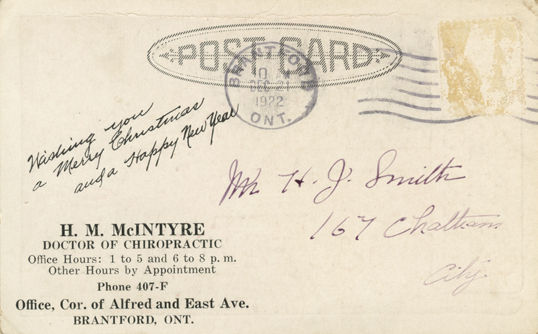 POST CARD
BRANTFORD
10 A
DEC 21
1922
ONT.
Wishing you
a Merry Christmas
and a Happy New Year
Mr H. J. Smith
167 Chatham
City.
H. M. McINTYRE
DOCTOR OF CHIROPRACTIC
Office Hours: 1 to 5 and 6 to 8 p. m.
Other Hours by Appointment
Phone 407-F
Office, Cor. of Alfred and East Ave.
BRANTFORD, ONT.